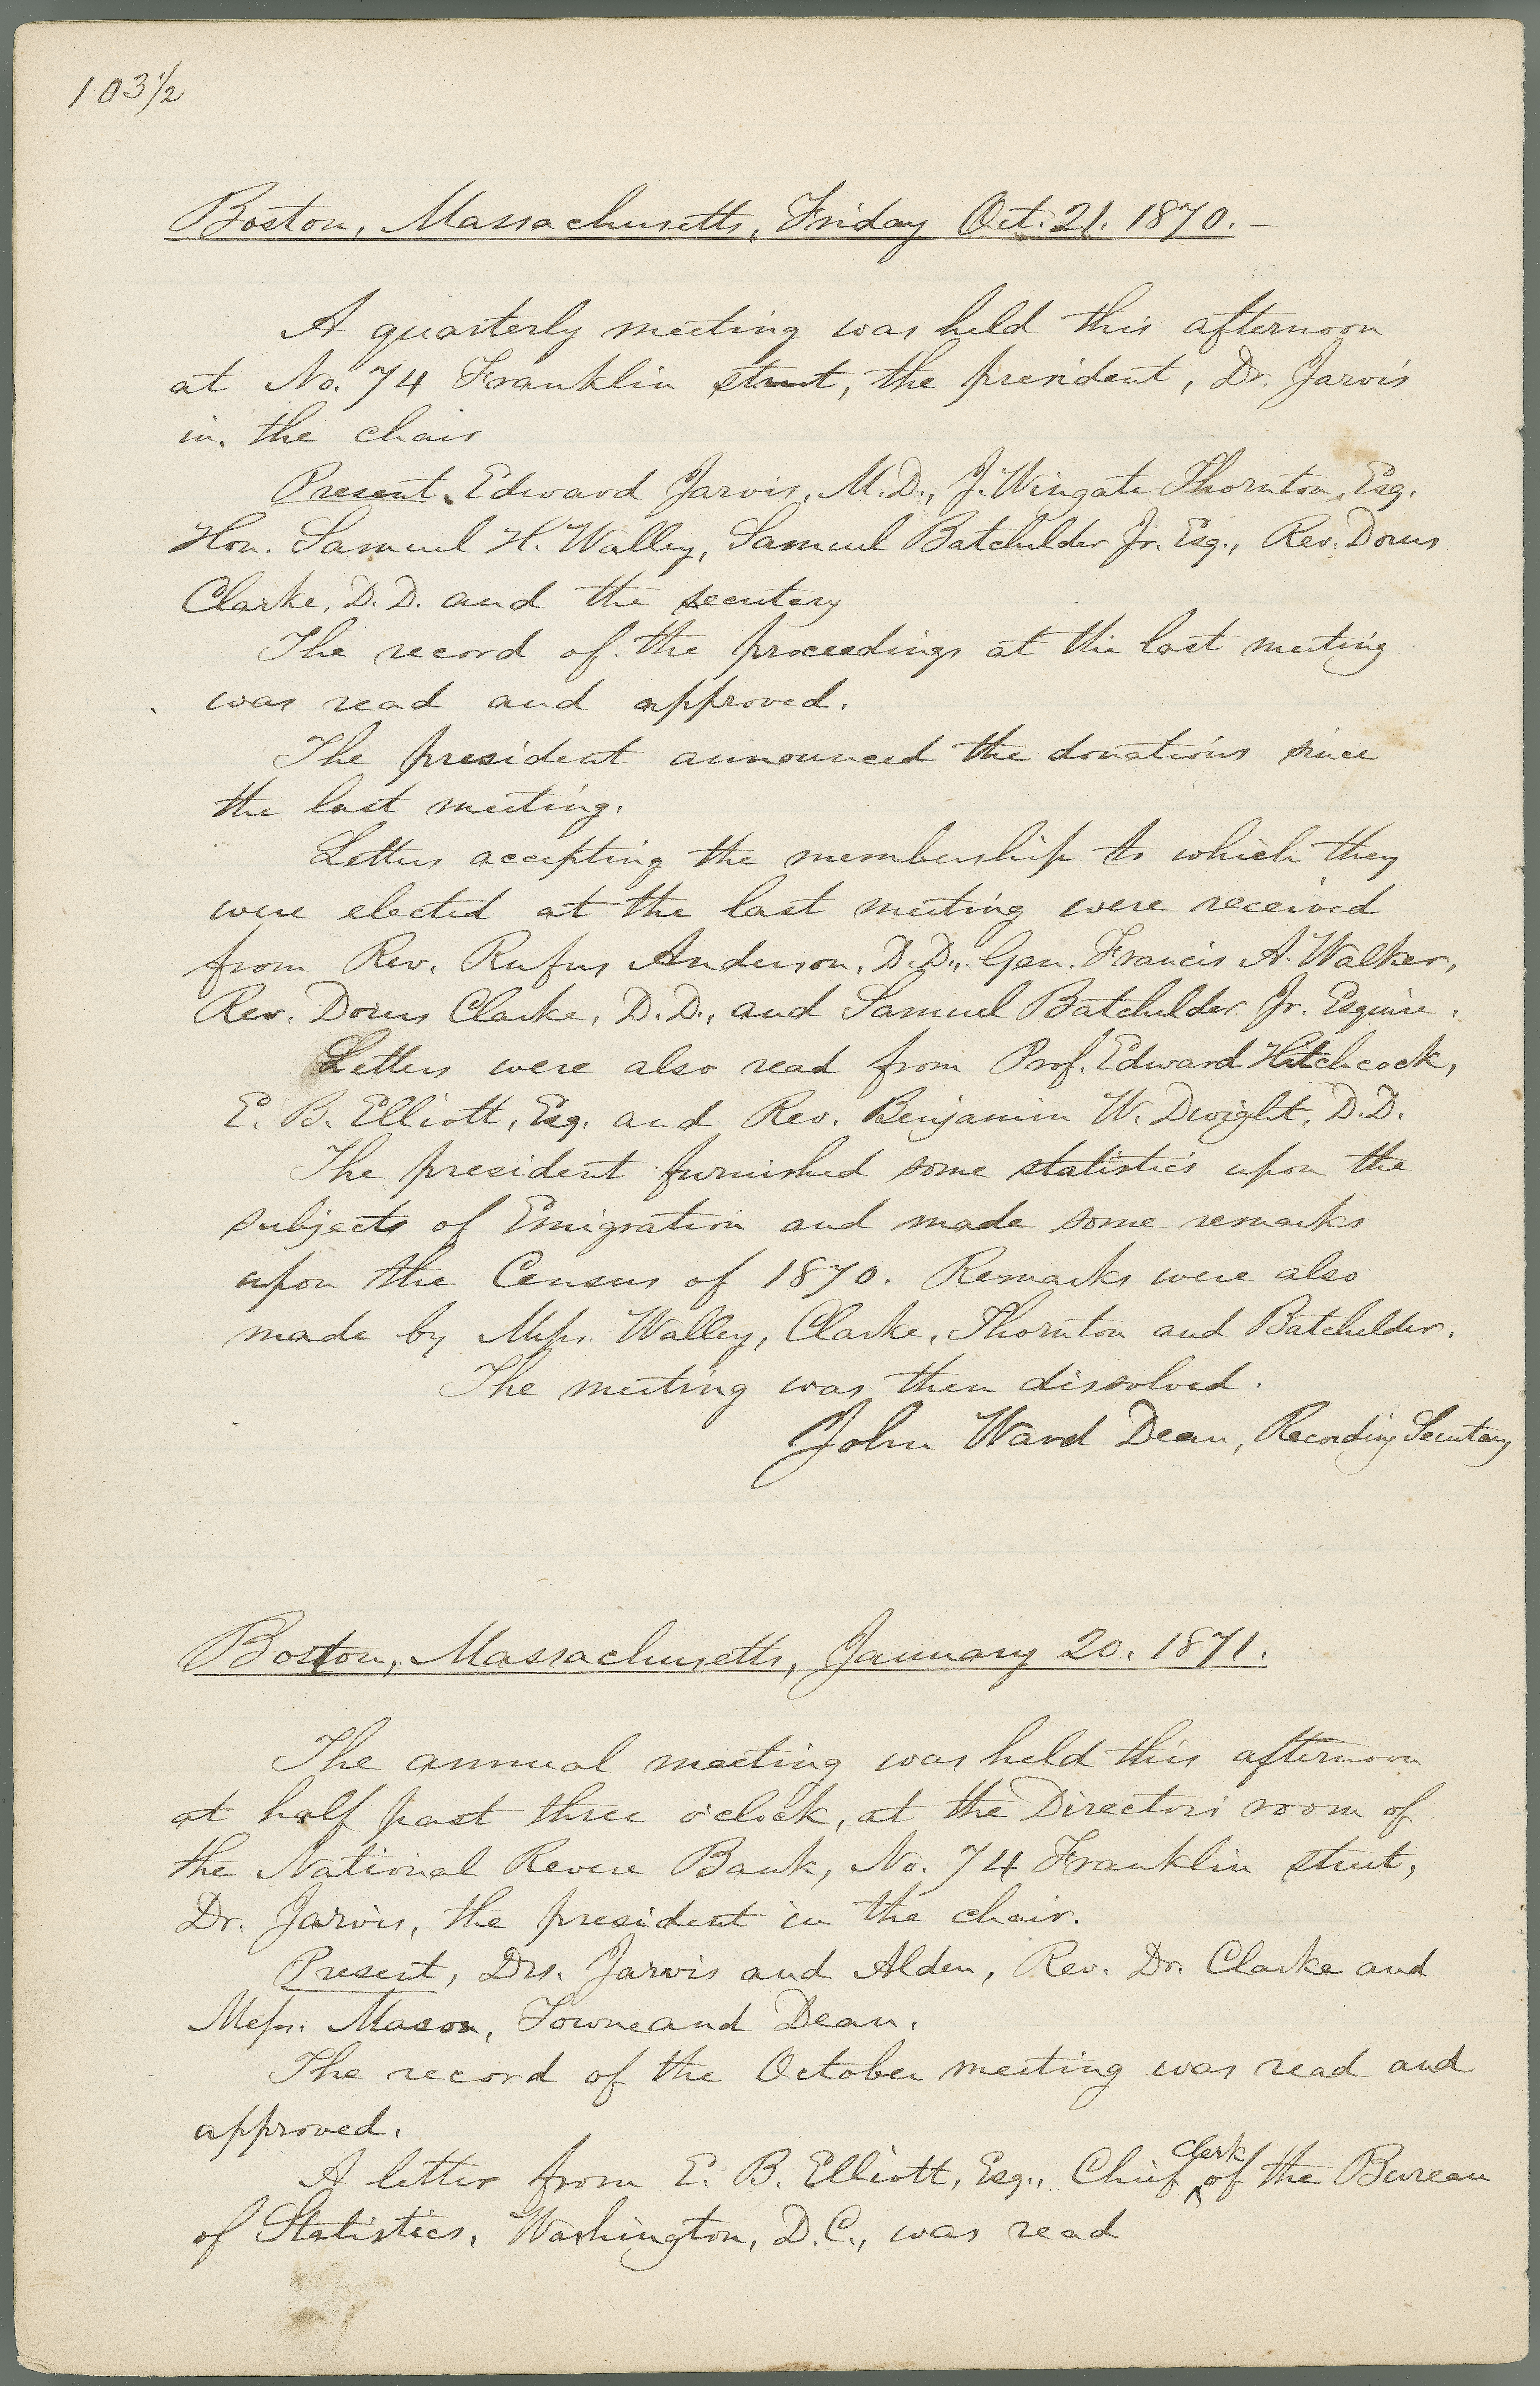 103 1/2
Boston, Massachusetts, Friday Oct. 21. 1870. —
A quarterly meeting was held this afternoon
at No. 74 Franklin street, the president, Dr. Jarvis
in the chair
Present, Edward Jarvis, M.D., J. Wingate Thornton, Esq.
Hon. Samuel H. Walley, Samuel Batchelder Jr. Esq., Rev. Dorus
Clarke, D.D. and the secretary
The record of the proceedings at the last meeting
was read and approved.
The president announced the donations since
the last meeting.
Letters accepting the membership to which they
were elected at the last meeting were received
from Rev. Rufus Anderson, D.D., Gen. Francis A. Walker,
Rev. Dorus Clarke, D.D., and Samuel Batchelder Jr. Esquire.
Letters were also read from Prof. Edward Hitchcock,
E. B. Elliott, Esq. and Rev. Benjamin W. Dwight, D.D.
The president furnished some statistics upon the
subjects of Emigration and made some remarks
upon the Census of 1870. Remarks were also
made by Messrs. Walley, Clarke, Thornton and Batchelder.
The meeting was then dissolved.
John Ward Dean, Recording Secretary
Boston, Massachusetts, January 20. 1871.
The annual meeting was held this afternoon
at half past three o'clock, at the Directors' room of
the National Revere Bank, No. 74 Franklin street,
Dr. Jarvis, the president in the chair.
Present, Drs. Jarvis and Alden, Rev. Dr. Clarke and
Messrs. Mason, Towne and Dean.
The record of the October meeting was read and
approved.
A letter from E. B. Elliott, Esq., Chief clerk of the Bureau
of Statistics, Washington, D.C., was read